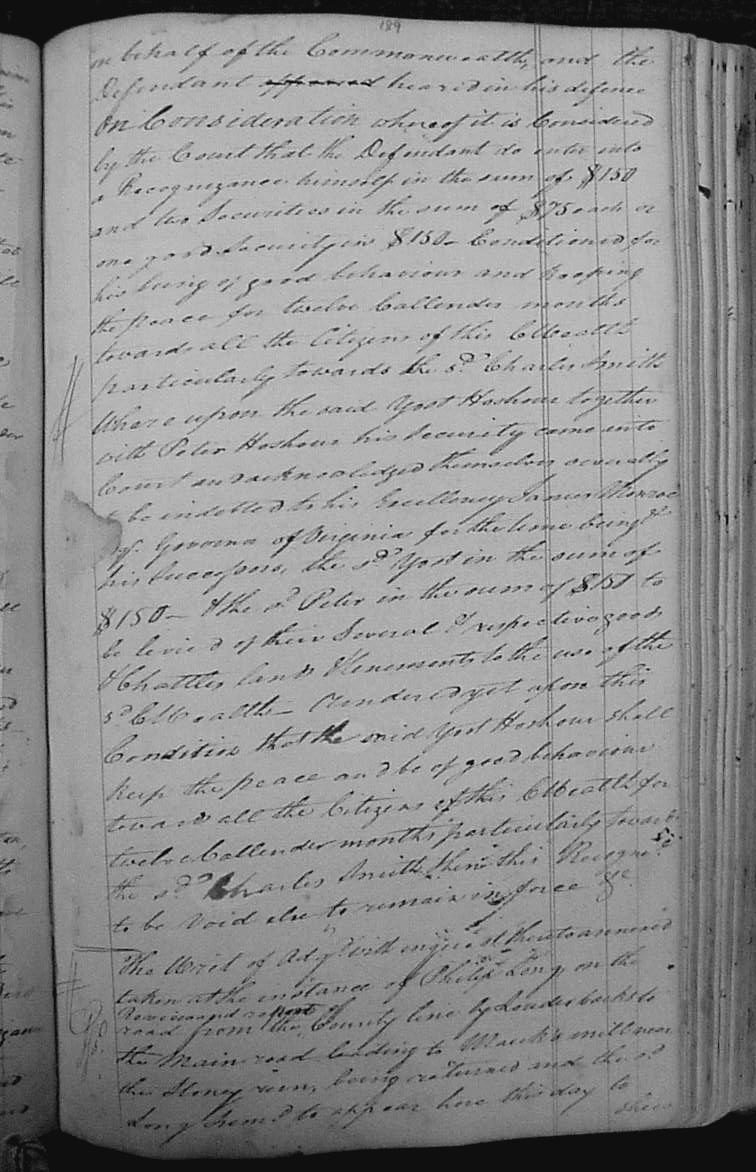 189
on behalf of the Commonwealth, and the
Defendant appeared heared in his defence
On Consideration whereof it is Considered
by the Court that the Defendant do enter into
a Recognizance himself in the sum of $150
and two Securities in the sum of $75 each or
one good Security in $150 - Conditioned for
his being of good behaviour and keeping
the peace for twelve Callender months
towards all the Citizens of this CWealth
particularly towards the sd. Charles Smith
Whereupon the said Yost Hoshour together
with Peter Hoshour his Security came into
Court and acknowledged themselves severally
to be indebted to his Excellency James Monroe
Governor of Virginia for the time being &
his Successors, the sd. Yost in the sum of
$150 - & the sd. Peter in the sum of $150 to
be levied of their Several & respective goods
& Chattles lands & tenements to the use of the
sd. CWealth - Rendered yet upon this
Condition that the said Yost Hoshour shall
keep the peace and be of good behaviour
toward all the Citizens of this CWealth for
twelve Callender months particularly towards
the sd. Charles Smith then this Recogne.
to be Void else to remain in force &c.
The Writ of Ad qd. with inquest thereto annexed
taken at the instance of Philip Long on the
Reviewand report
road from the County line by Louderbacks to
the Main road leading to Mauck's mill near
the Stoney run, being returned and the sd.
Long Sumd. to appear here this day to
shew